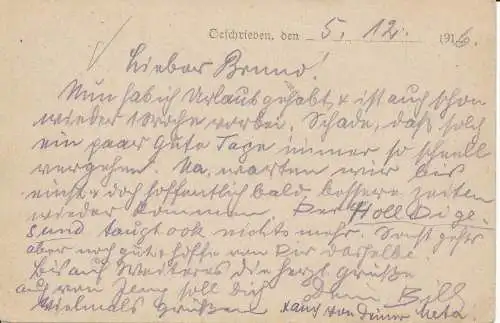 Geschrieben, den 5. 12. 1916.
Lieber Bruno!
Nun hab ich Urlaub gehabt & ist auch schon
wieder Woche vorbei. Schade, daß solch
ein paar gute Tage immer so schnell
vergehen. Na, warten wir bis
einst & doch hoffentlich bald bessere Zeiten
wieder kommen. Der
taugt ook nichts mehr. Sonst gehts
aber noch gut & hoffe von Dir dasselbe.
Bis auf Weiteres Die herzl Grüße
auch von soll Dich Dein
vielmals grüßen xauch von deiner Meta.